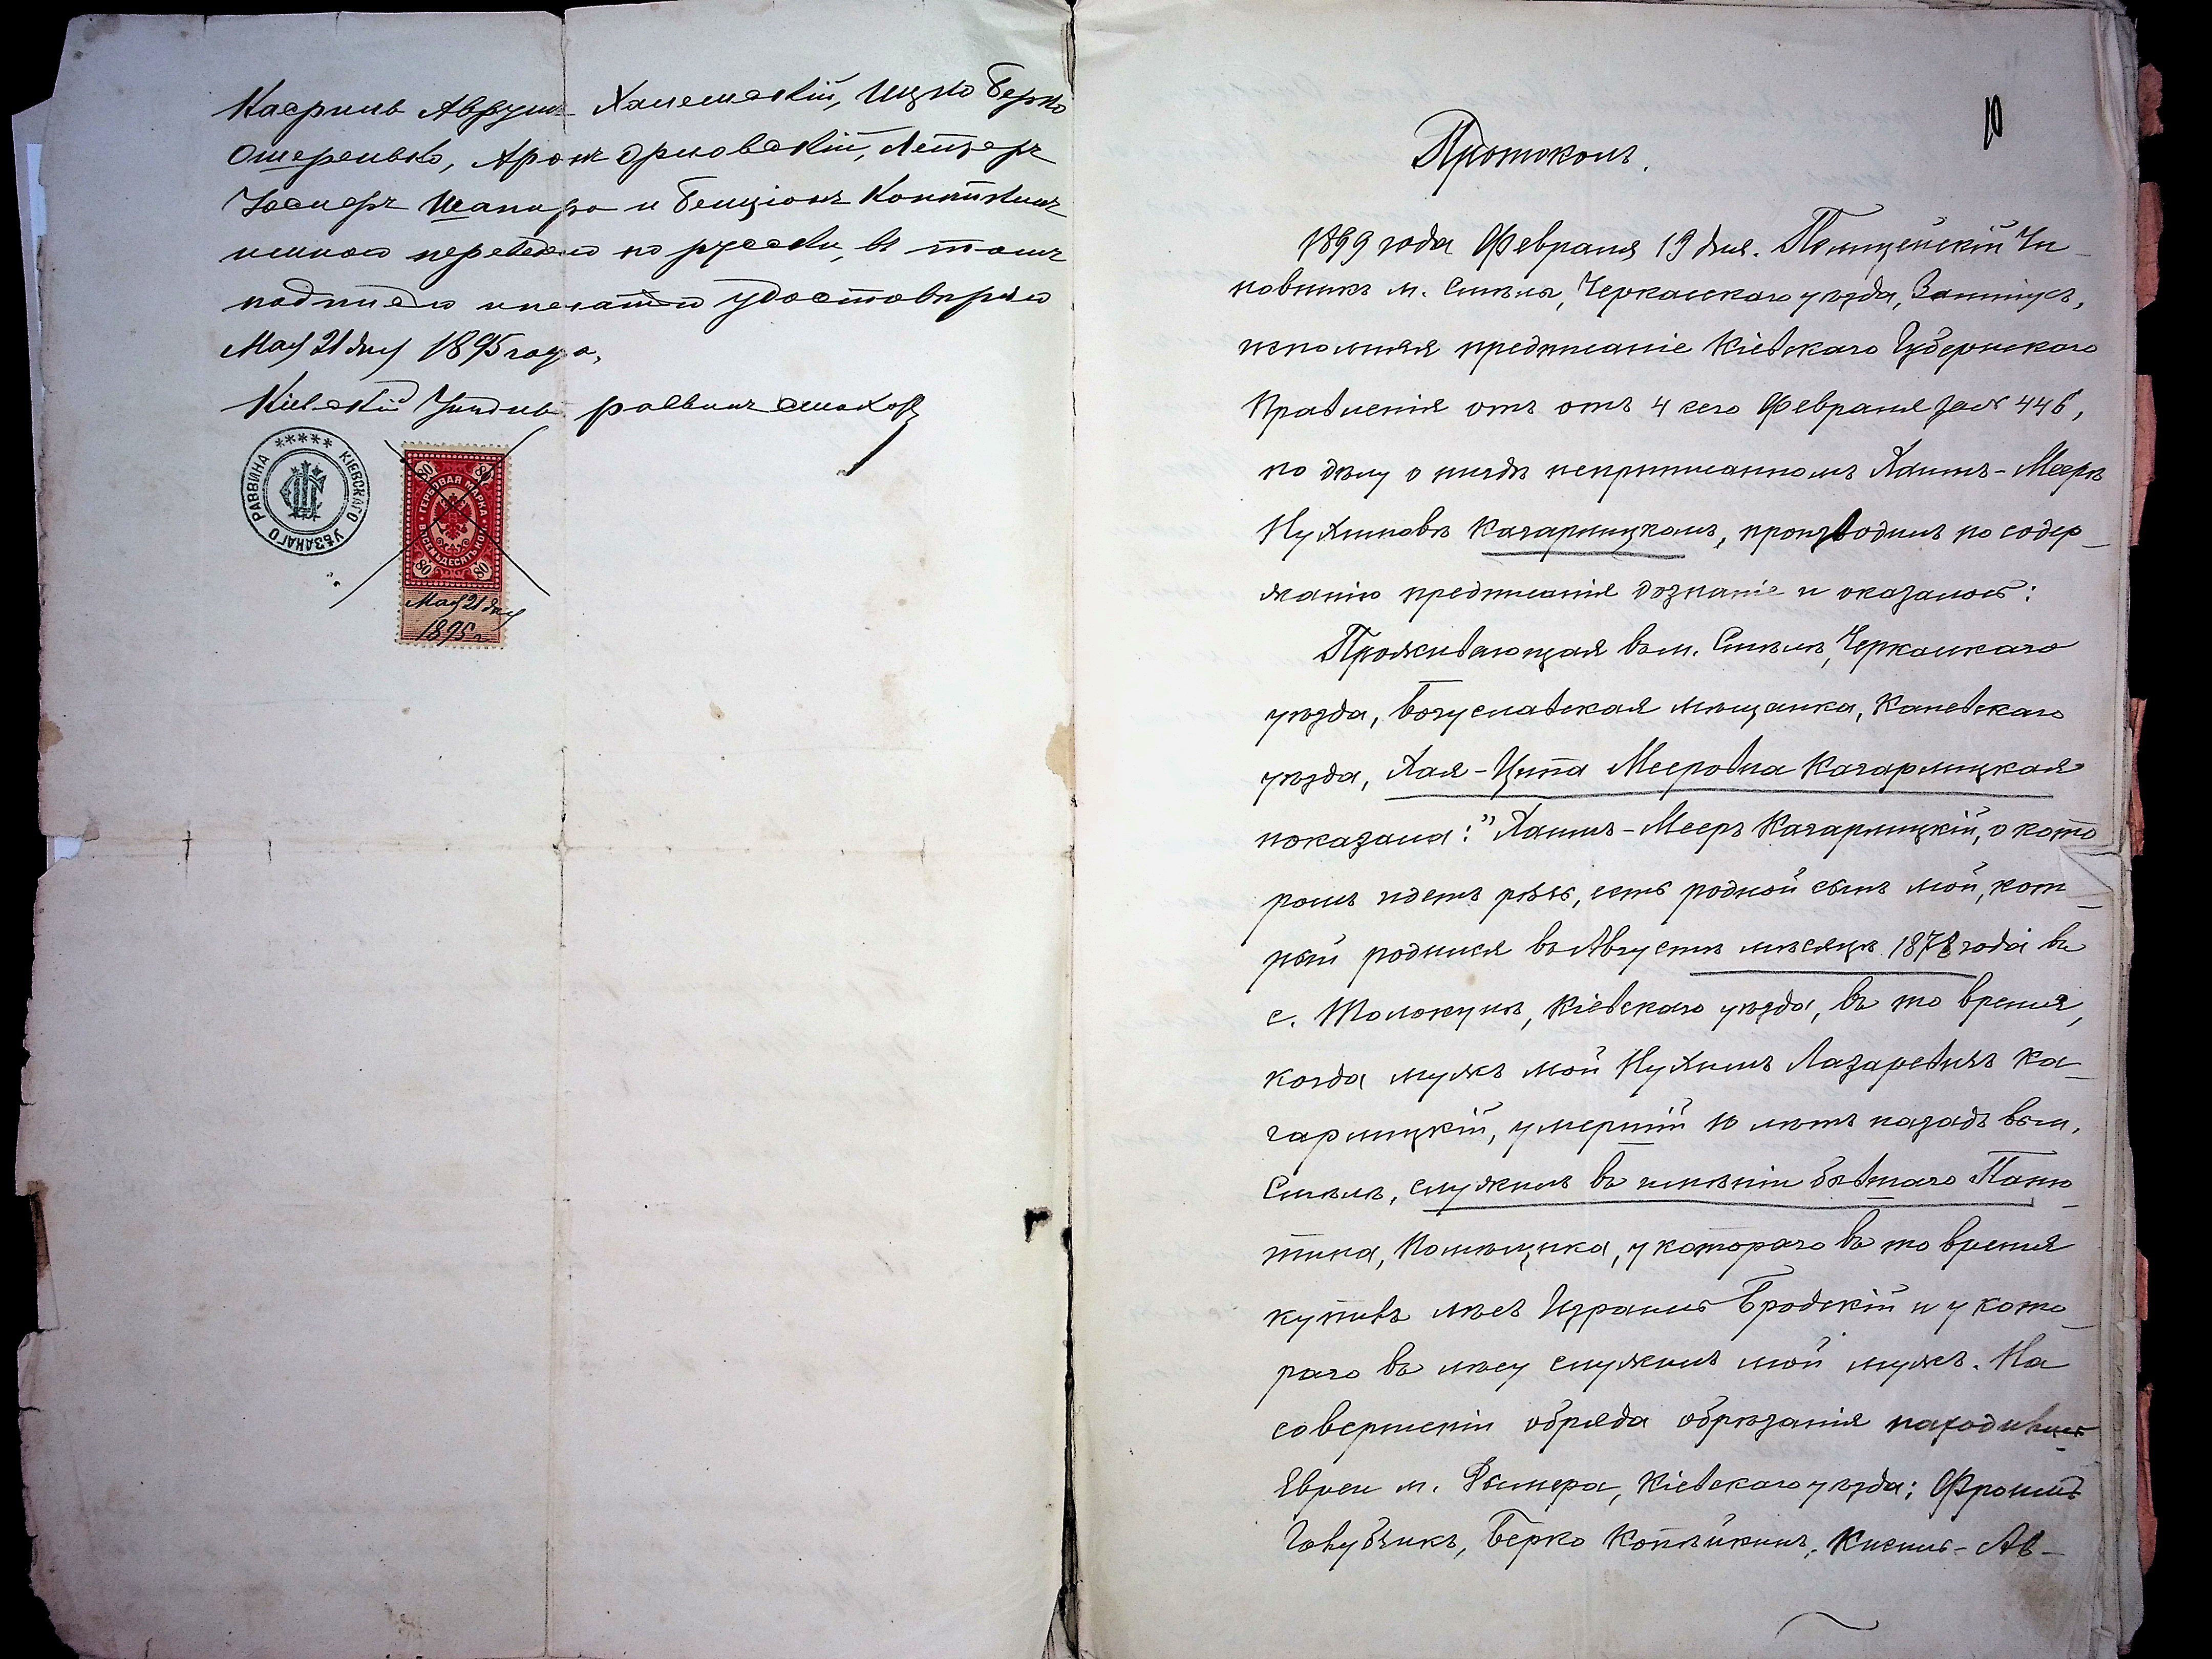 Касриль Аврум Халемскій, Ицко Берко
Ошеренко, Аронъ Орловскій, Лейзеръ
Іосифъ Шапиро и Бенціонъ Копѣйкинъ
мною переведено по русски, въ томъ
подписью и печатью удостовѣряю
Мая 21 дня 1895 года.
Кіевскій Уѣздный раввинъ
КІЕВСКАГО УѢЗДНАГО РАВВИНА
80 80
ГЕРБОВАЯ МАРКА
ВОСЕМЬДЕСЯТЪ КОП.
80 80
Мая 21 дня
1895 г.
10
Протоколъ.
1899 года Февраля 19 дня. Полицейскій Чи-
новникъ м. Смѣлы, Черкасскаго уѣзда,
исполняя предписаніе Кіевскаго Губернскаго
Правленія отъ отъ 4 сего Февраля за № 446,
по дѣлу о нигдѣ неприписанномъ Хаимъ-Меерѣ
Нухимовѣ Кагарлицкомъ, производилъ по содер-
жанію предписанія дознаніе и оказалось:
Проживающая въ м. Смѣлѣ, Черкасскаго
уѣзда, Богуславская мѣщанка, Каневскаго
уѣзда, Хая-Ципа Мееровна Кагарлицкая
показала: "Хаимъ-Мееръ Кагарлицкій, о кото
ромъ идетъ рѣчь, есть родной сынъ мой, кот-
рый родился въ Августѣ мѣсяцѣ 1878 года въ
с. Толокунѣ, Кіевскаго уѣзда, въ то время,
когда мужъ мой Нухимъ Лазаревичъ Ка-
гарлицкій, умершій 10 лѣтъ назадъ въ м.
Смѣлѣ, служилъ въ имѣніи бывшаго Паню-
тина, Помѣщика, у котораго въ то время
купивъ лѣсъ Израиль Бродскій и у кото-
раго въ лѣсу служилъ мой мужъ. На
совершеніи обряда обрѣзанія находились
Евреи м. Дымера, Кіевскаго уѣзда: Фроимъ
Голубчикъ, Берко Копѣйкинъ, Кисиль-Ав-